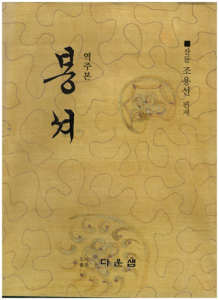 ■산돌 조용선 편저
역주본
봉셔
다운샘